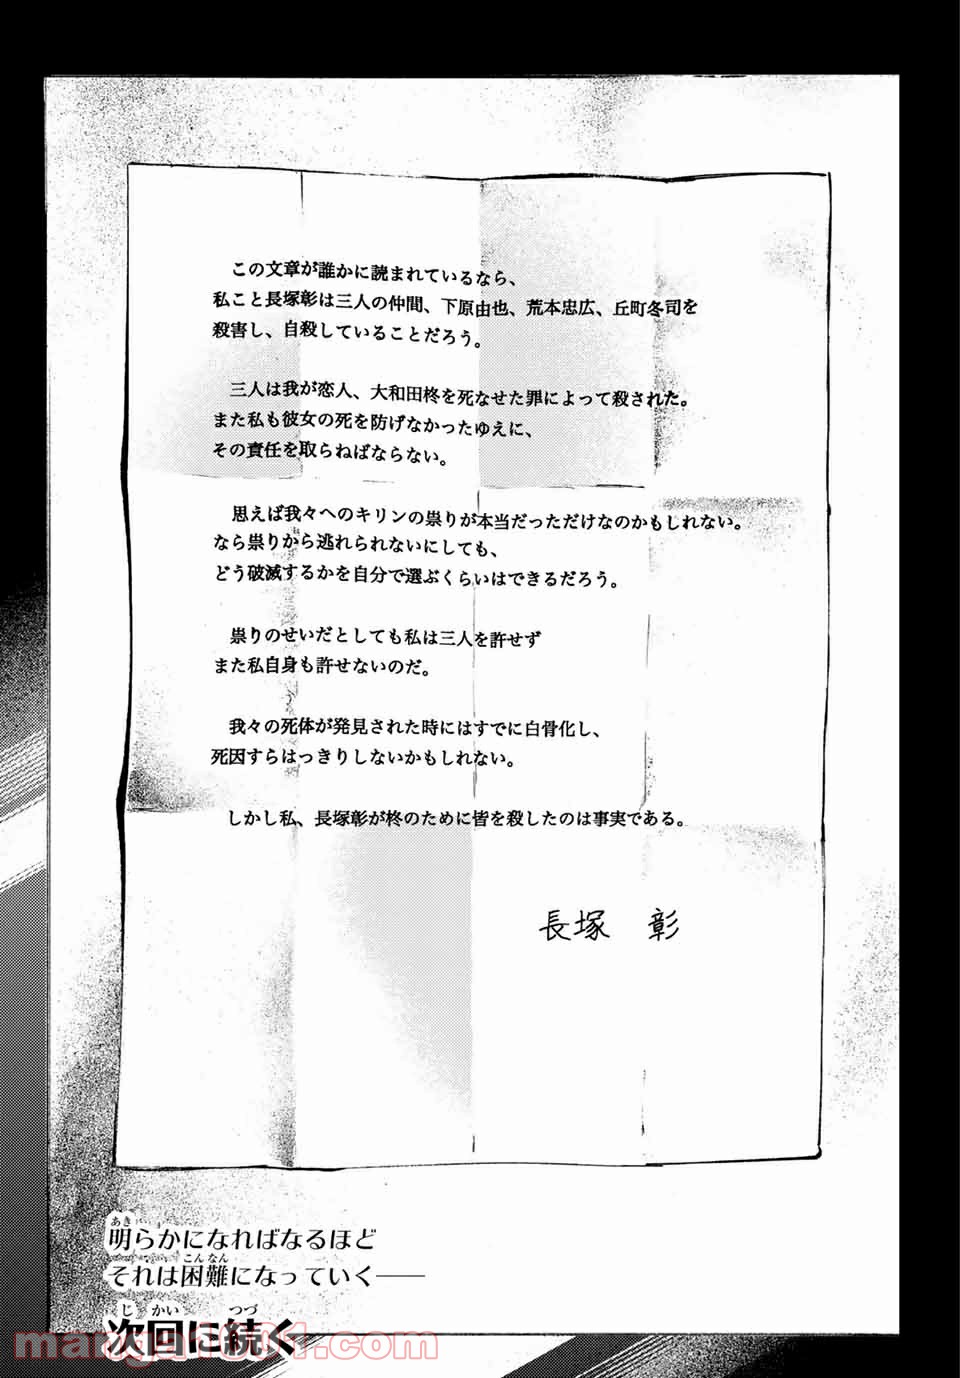 この文章が誰かに読まれているなら、
私こと長塚彰は三人の仲間、下原由也、荒本忠広、丘町冬司を
殺害し、自殺していることだろう。
三人は我が恋人、大和田柊を死なせた罪によって殺された。
また私も彼女の死を防げなかったゆえに、
その責任を取らねばならない。
思えば我々へのキリンの祟りが本当だっただけなのかもしれない。
なら祟りから逃れられないにしても、
どう破滅するかを自分で選ぶくらいはできるだろう。
祟りのせいだとしても私は三人を許せず
また私自身も許せないのだ。
我々の死体が発見された時にはすでに白骨化し、
死因すらはっきりしないかもしれない。
しかし私、長塚彰が柊のために皆を殺したのは事実である。
長塚 彰
あき
明らかになればなるほど
こんなん
それは困難になっていく――
じかい つづ
次回に続く